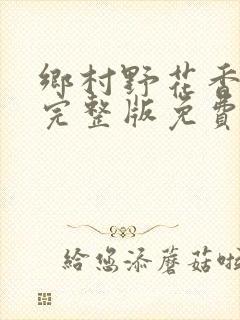 鄉村野花香
完整版免費
給您添蘑菇啦